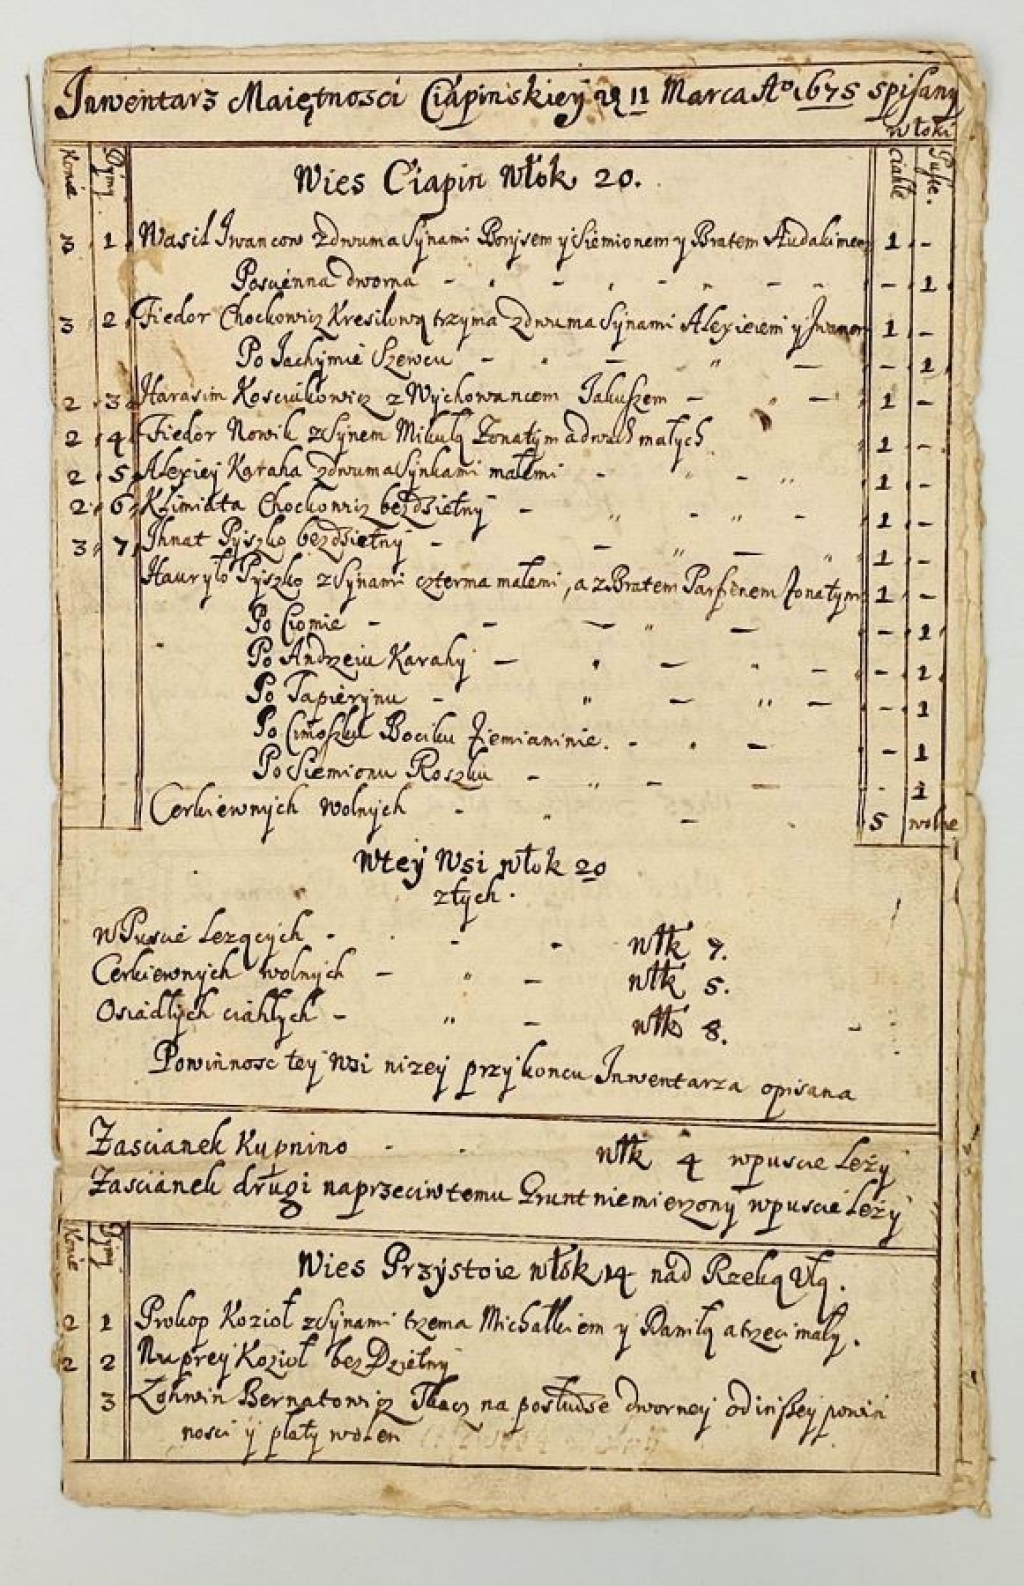 Inwentarz Maiętnosci Ciapinskiey 11 Marca Aº 1675 spisany
włoki
Konie Dymy ciahłe Puste.
Wies Ciapin Włok 20.
3 1 Wasil Iwancow zdwuma Synami Borysem y Siemionem y Bratem Audakimem 1 -
Posienna dworna - - - - - - - 1
3 2 Fiedor Chockowicz Kresilowq trzyma zdwuma Synami Alexieiem y Iwanem 1 -
Po Jachymie Szewcu - - - - - 1
2 3 Harasim Kosciukowicz z Wychowancem Jakuszem - " - 1 -
2 4 Fiedor Nowik zSynem Mikulą Żonatym a dwuch małych 1 -
2 5 Alexiey Karaha zdwuma Synkami małemi - " - " 1 -
2 6 Klimiata Chockowicz bezdzietny - " - " - 1 -
3 7 Ihnat Pyszko bezdzietny - - " - " 1 -
Hauryło Pyszko z Synami czterma małemi, a z Bratem Parfienem Żonatym 1 -
Po Ciomie - - - " - - 1
Po Andrzeiu Karahy - " - " - - 1
Po Tapierynu - " - " - - 1
Po Cimoszku Bociku Ziemianinie. - " - - 1
Po Siemionu Roszku - " - - - 1
Cerkiewnych wolnych - " - 5 wolne
Wtey Wsi włok 20
złych.
w Puscie Lezących - - - włk 7.
Cerkiewnych wolnych - " - włk 5.
Osiadłych ciahłych - " - włk 8.
Powinnosc tey Wsi nizey przy koncu Inwentarza opisana
Zascianek Kupnino - - włk 4 wpuscie Leży
Zascianek drugi naprzeciwtemu Grunt niemierzony wpuscie Leży
Konie Dymy
Wies Przystoie włok 14 nad Rzeką Ułą.
2 1 Prokop Kozioł zSynami trzema Michałkiem y Daniłą a trzeci mały.
2 2 Nuprey Kozioł bezDzietny
3 Łohwin Bernatowicz Tkacz na posłudse dworney od inszey powin
nosci y płaty wolen